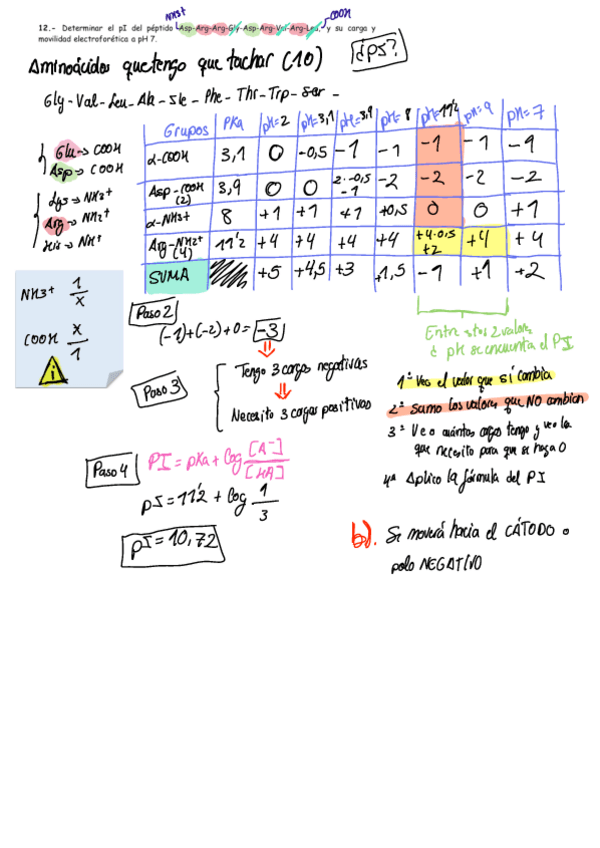 NH3+
COOH
12.- Determinar el pI del péptido Asp-Arg-Arg-Gly-Asp-Arg-Val-Arg-Leu, y su carga y
movilidad electroforética a pH 7.
Aminoácidos que tengo que tachar (10)
¿ps?
Gly - Val - Leu - Ala - Ile - Phe - Thr - Trp - Ser -
Glu → COOH
Asp → COOH
Lys → NH3+
Arg → NH2+
His → NH+
Grupos PKa pH=2 pH=3,1 pH=3,9 pH=8 pH=11'2 pH=9 pH=7
α-COOH 3,1 0 -0,5 -1 -1 -1 -1 -1
Asp-COOH (2) 3,9 0 0 2·-0,5 -1 -2 -2 -2 -2
α-NH3+ 8 +1 +1 +1 +0,5 0 0 +1
Arg-NH2+ (4) 11'2 +4 +4 +4 +4 +4·0.5 +2 +4 +4
SUMA +5 +4,5 +3 +1,5 -1 +1 +2
NH3+ 1/x
COOH x/1
!
Paso 2
(-1)+(-2)+0= -3
Entre stos 2 valores
d pH se encuentra el PI
Paso 3
Tengo 3 cargas negativas
Necesito 3 cargas positivas
1º Veo el valor que sí cambia
2º Sumo los valores que NO cambian
3º Veo cuántas cargas tengo y veo las
que necesito para que se haga 0
4º Aplico la fórmula del PI
Paso 4
PI = pKa + log [A-]/[HA]
pI = 11'2 + log 1/3
pI = 10,72
b). Se moverá hacia el CÁTODO o
polo NEGATIVO